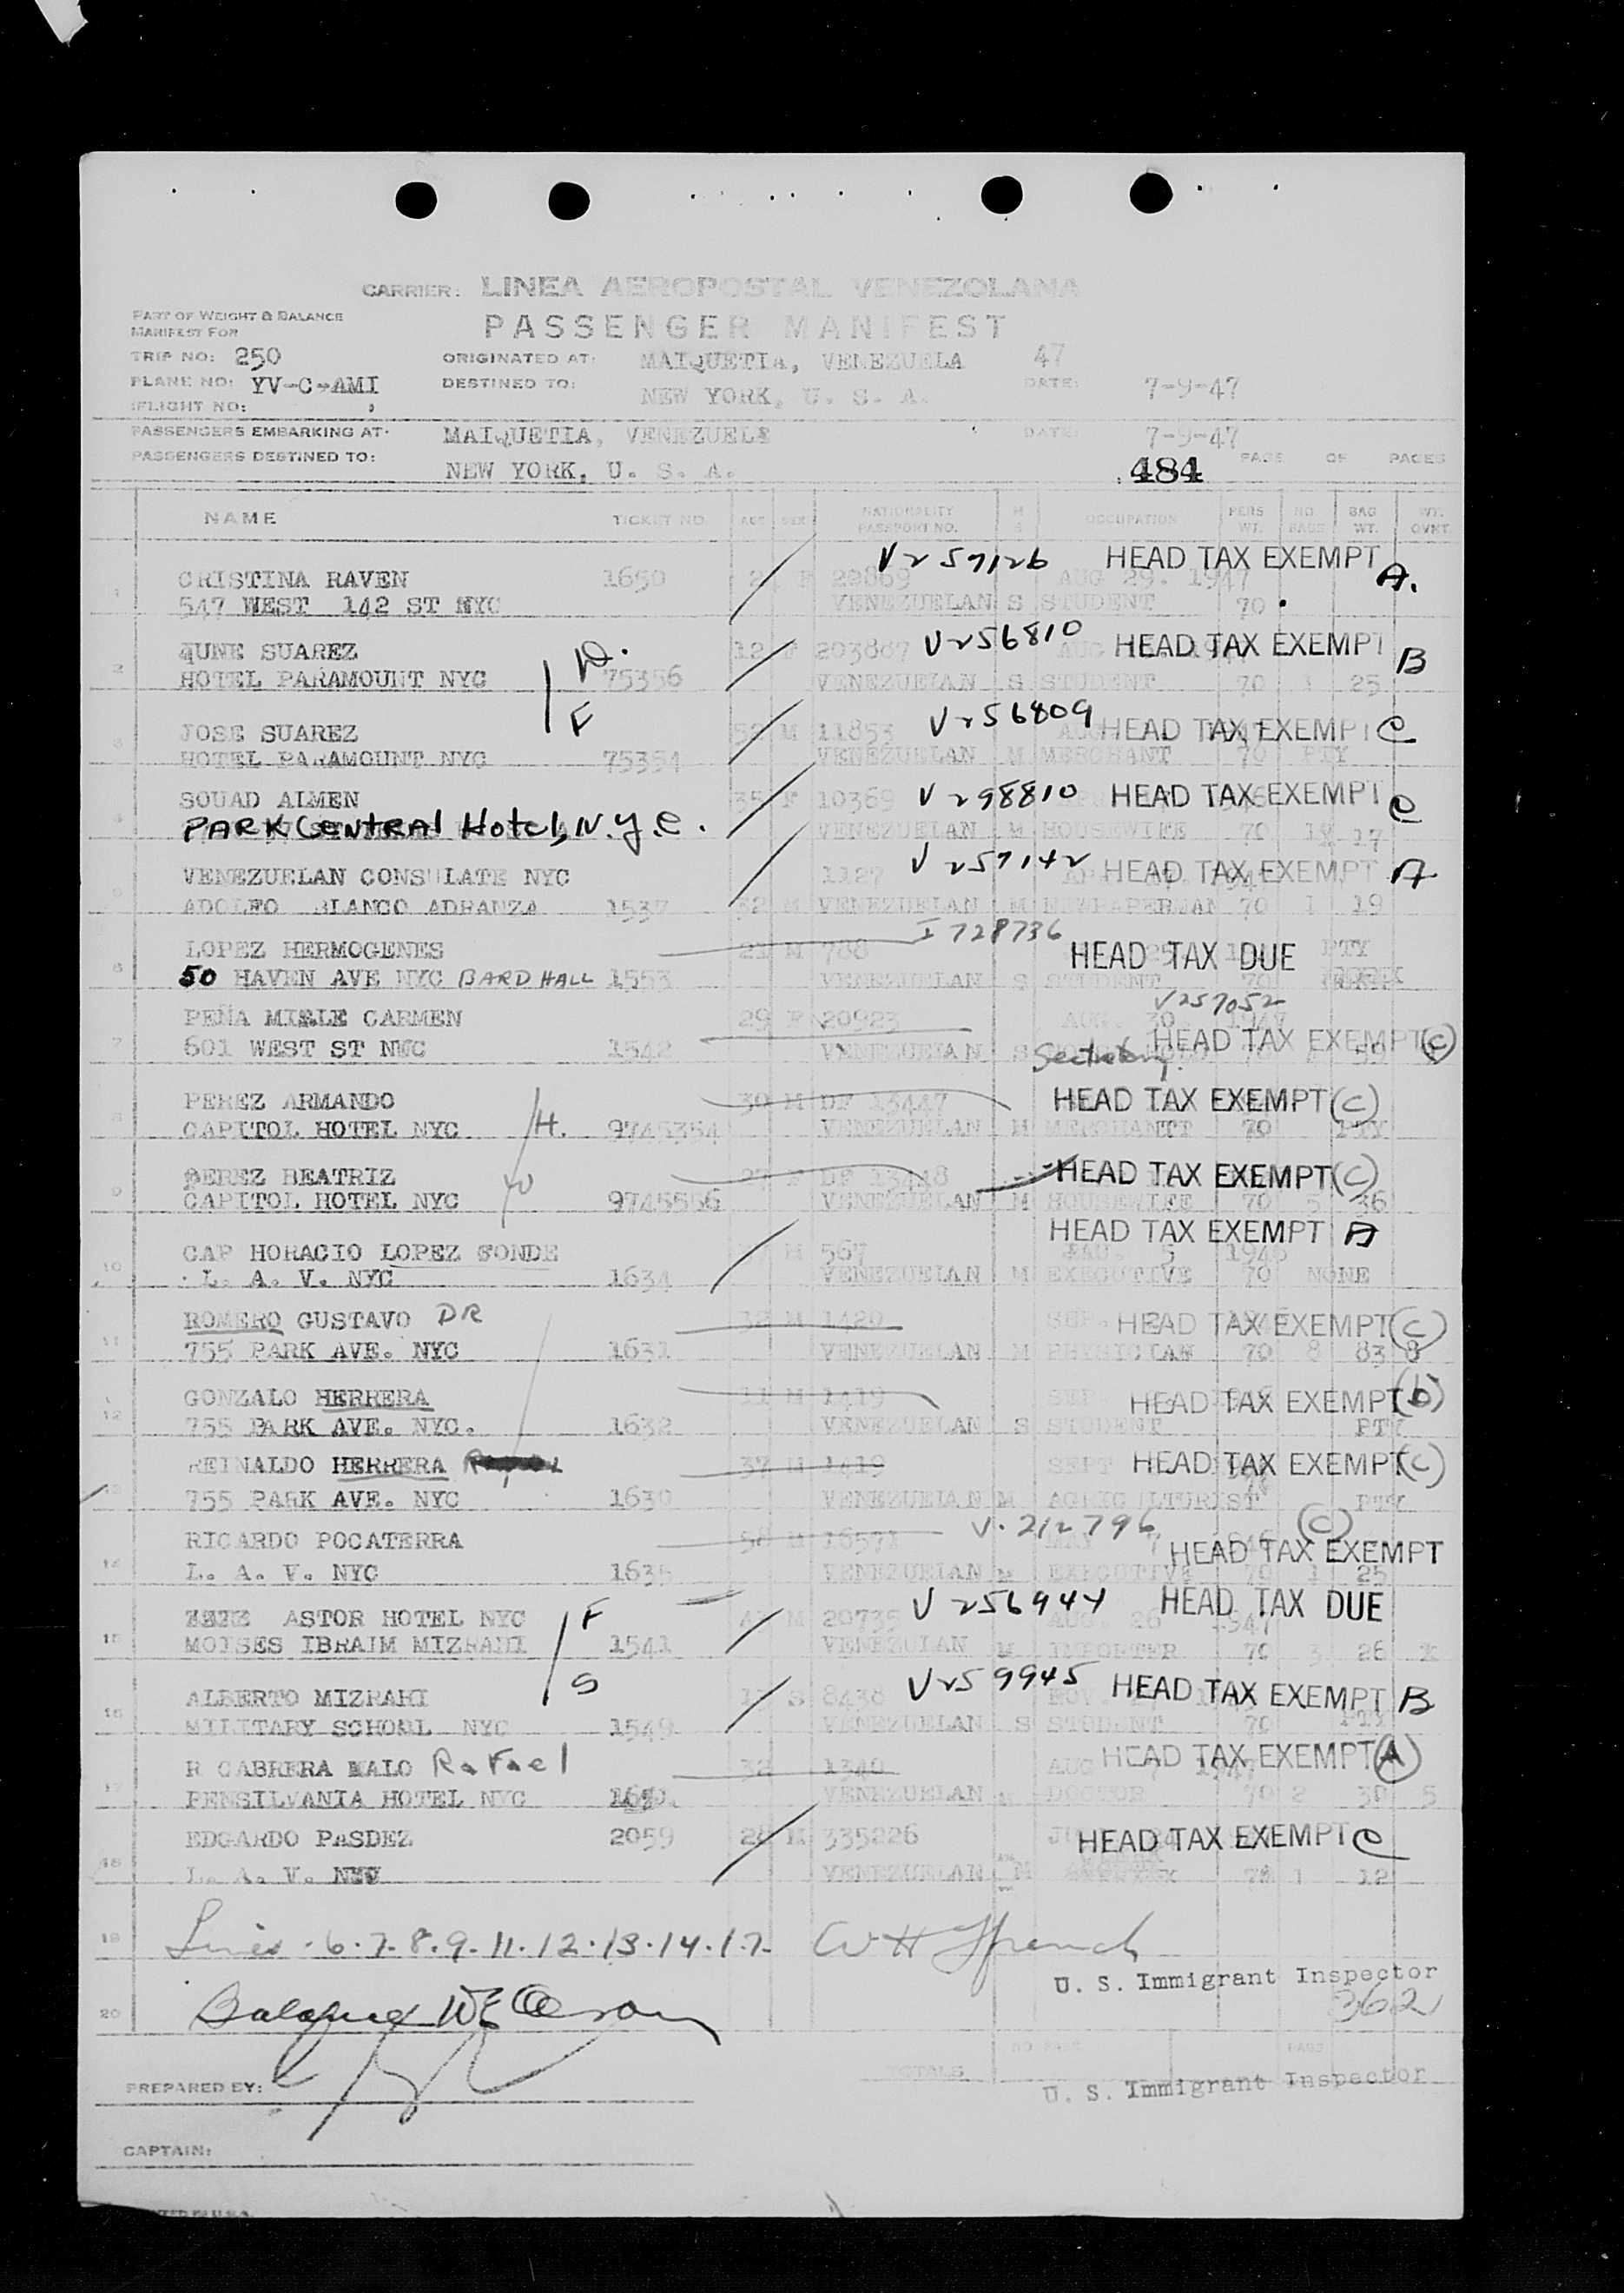 CARRIER: LINEA AEROPOSTAL VENEZOLANA
PART OF WEIGHT & BALANCE
MANIFEST FOR
PASSENGER MANIFEST
TRIP NO: 250 ORIGINATED AT: MAIQUETIA, VENEZUELA 47
PLANE NO: YV-C-AMI DESTINED TO: NEW YORK, U. S. A. DATE: 7-9-47
FLIGHT NO:
PASSENGERS EMBARKING AT: MAIQUETIA, VENEZUELS DATE: 7-9-47
PASSENGERS DESTINED TO: NEW YORK, U. S. A. 484 PAGE OF PAGES
NAME TICKET NO. AGE SEX NATIONALITY PASSPORT NO. M S OCCUPATION PERS WT. NO. BAGS BAG WT. WT. OVWT.
V257126 HEAD TAX EXEMPT A.
1 CRISTINA RAVEN 1650 F 22869 AUG 29. 1947
547 WEST 142 ST NYC VENEZUELAN S STUDENT 70
V256810 HEAD TAX EXEMPT B
2 JUNE SUAREZ D. 12 F 203867
HOTEL PARAMOUNT NYC 75356 VENEZUELAN S STUDENT 70 1 25
V256809 HEAD TAX EXEMPT C
3 JOSE SUAREZ F 52 M 11853
HOTEL PARAMOUNT NYC 75354 VENEZUELAN M MERCHANT 70 PTY
4 SOUAD AIMEN 35 F 10369 V298810 HEAD TAX EXEMPT C
PARK CENTRAL Hotel, N.Y.C. VENEZUELAN M HOUSEWIFE 70 17
5 VENEZUELAN CONSULATE NYC 1127 V257142 HEAD TAX EXEMPT A
ADOLFO BLANCO ADRANZA 1537 32 M VENEZUELAN M NEWPAPERMAN 70 1 19
I 728736
6 LOPEZ HERMOGENES 21 M 788 HEAD TAX DUE PTY
50 HAVEN AVE NYC BARD HALL 1553 VENEZUELAN S STUDENT 70
V257052
7 PEÑA MISLE CARMEN 29 F 20923 AUG. 30 1947
601 WEST ST NYC 1542 VENEZUELAN S Secretary HEAD TAX EXEMPT (C) 59
8 PEREZ ARMANDO 30 M DF 13447 HEAD TAX EXEMPT (C)
CAPITOL HOTEL NYC H. 9745354 VENEZUELAN M MERCHANTT 70 PTY
9 PEREZ BEATRIZ W 27 F DF 13448 HEAD TAX EXEMPT (C)
CAPITOL HOTEL NYC 9745556 VENEZUELAN M HOUSEWIFE 70 5 36
HEAD TAX EXEMPT A
10 CAP HORACIO LOPEZ SONDE M 567 5 1946
L. A. V. NYC 1634 VENEZUELAN M EXECUTIVE 70 NONE
11 ROMERO GUSTAVO DR 38 M 1420 HEAD TAX EXEMPT (C)
755 PARK AVE. NYC 1631 VENEZUELAN M PHYSICIAN 70 8 83 8
12 GONZALO HERRERA 11 M 1419 HEAD TAX EXEMPT (b)
755 PARK AVE. NYC. 1632 VENEZUELAN S STUDENT PTY
13 REINALDO HERRERA 37 M 1419 SEPT HEAD TAX EXEMPT (C)
755 PARK AVE. NYC 1630 VENEZUELAN M AGRICULTURIST PTY
14 RICARDO POCATERRA 58 M 16571 V.212796 MAY 7 (C)
HEAD TAX EXEMPT
L. A. V. NYC 1635 VENEZUELAN M EXECUTIVE 70 1 25
V256944 HEAD TAX DUE
15 ASTOR HOTEL NYC F M 20735 AUG. 26 1947
MOISES IBRAIM MIZRAHI 1541 VENEZULAN M IMPORTER 70 3 26
16 ALBERTO MIZRAHI S 8438 V259945 HEAD TAX EXEMPT B
MILITARY SCHOOL NYC 1549 VENEZUELAN S STUDENT 70 PTY
17 R CABRERA MALO Rafael 32 1340 AUG 7 1947 HEAD TAX EXEMPT (A)
PENSILVANIA HOTEL NYC VENEZUELAN M DOCTOR 70 2 30 5
18 EDGARDO PASDEZ 2059 28 M 335226 HEAD TAX EXEMPT C
L. A. V. NYC VENEZUELAN M 1 12
19 Lines . 6. 7. 8. 9. 11. 12. 13. 14. 17. W H French
U. S. Immigrant Inspector
362
20
TOTALS
PREPARED BY:
U. S. Immigrant Inspector
CAPTAIN: